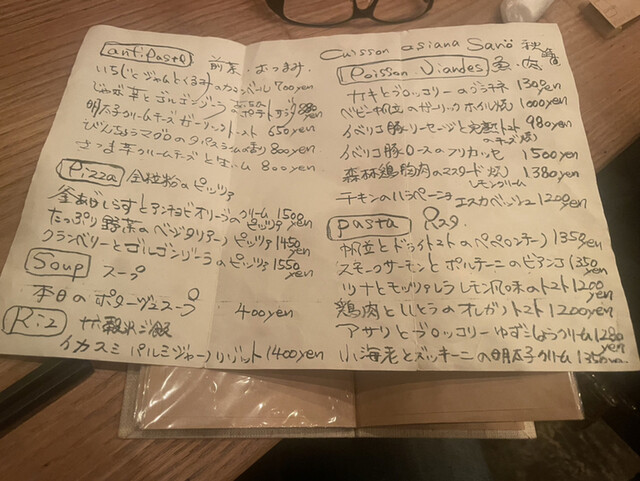 antipasto 前菜・おつまみ
いちじくジャムとくるみのカマンベール 700yen
じゃが芋とゴルゴンゾーラの ポテトサラダ 680yen
明太子クリームチーズガーリックトースト 650yen
びんちょうマグロのタパス 800yen
さつま芋クリームチーズと生ハム 800yen
Pizza 全粒粉のピッツァ
釜あげしらすとアンチョビオリーブのクリームピッツァ 1500yen
たっぷり野菜のベジタリアンピッツァ 1450yen
クランベリーとゴルゴンゾーラのピッツァ 1550yen
Soup スープ
本日のポタージュスープ 400yen
Riz 雑穀米ご飯
イカスミパルミジャーノリゾット 1400yen
Cuisson asiana Sano 秋
Poisson Viandes 魚・肉
カキとブロッコリーのグラタン 1300yen
ベビー帆立のガーリックオイル焼 1000yen
イベリコ豚ソーセージと完熟トマトのチーズ焼 980yen
イベリコ豚ロースのフリカッセ 1500yen
森林鶏胸肉のマスタード焼 レモンクリーム 1380yen
チキンのハラペーニョエスカベッシュ 1200yen
pasta パスタ
帆立とドライトマトのペペロンチーノ 1350yen
スモークサーモンとポルチーニのビアンコ 1350yen
ツナとモッツァレラ レモン風味のトマト 1200yen
鶏肉としめじのオレガノトマト 1200yen
アサリとブロッコリーゆずこしょうクリーム 1280yen
小海老とズッキーニの明太子クリーム 1350yen